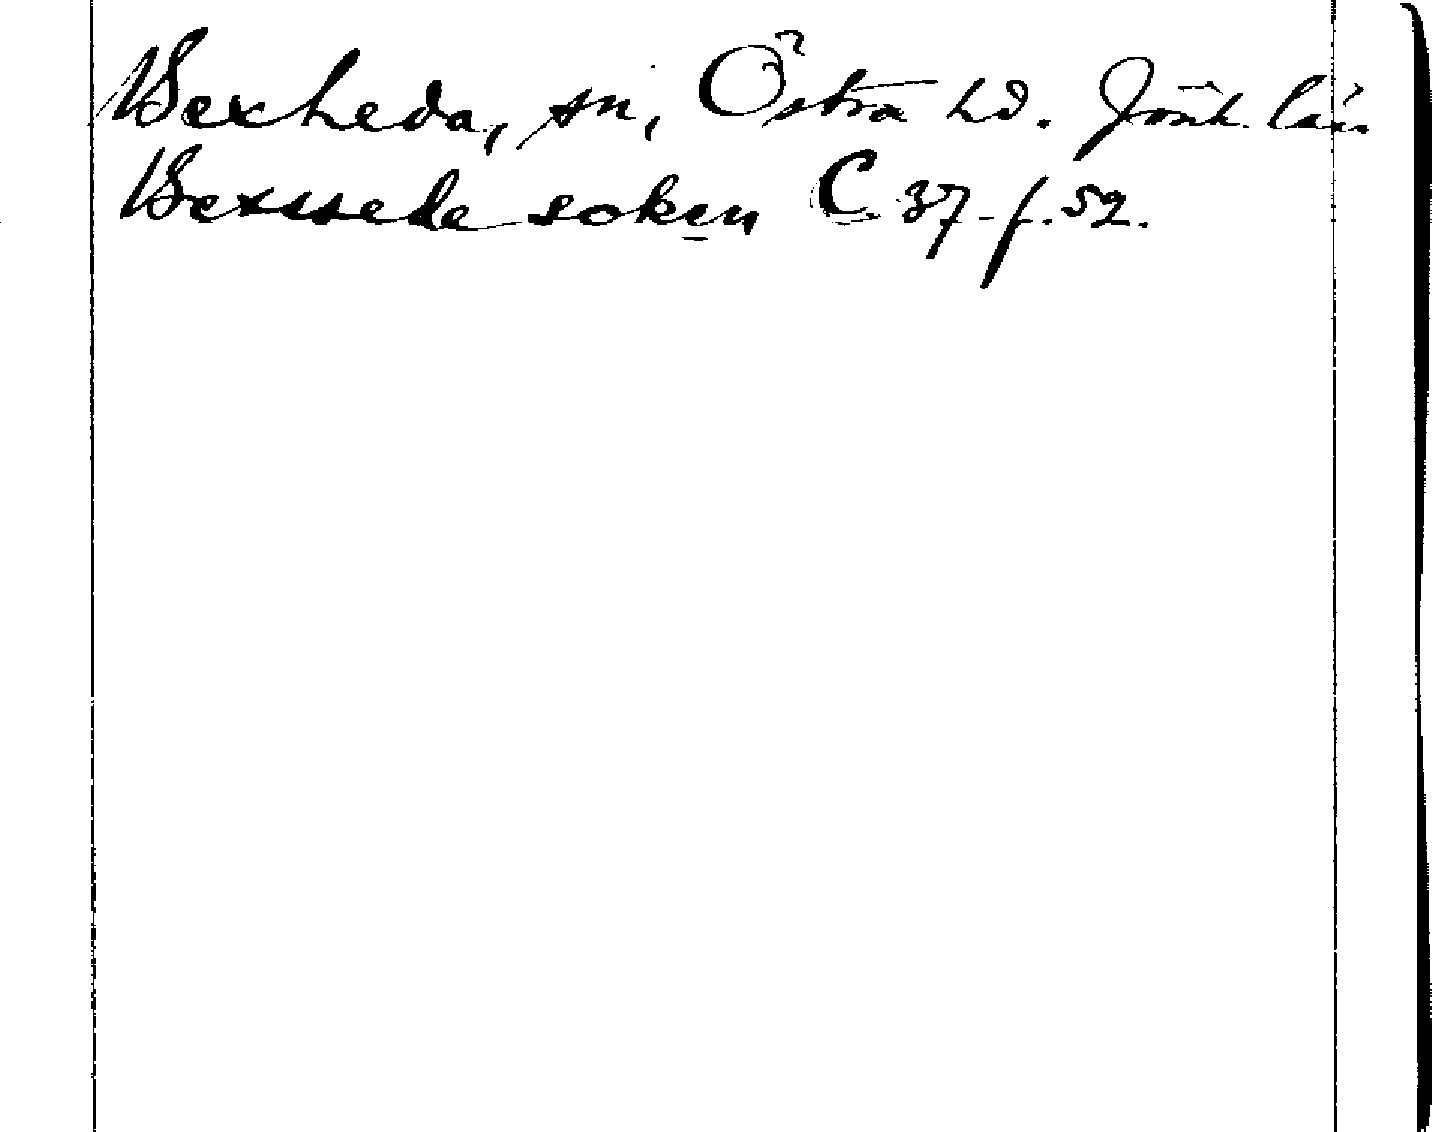 Vexheda, sn, Östra hd. Jönk. län
Vexssede soken C 37. f. 52.